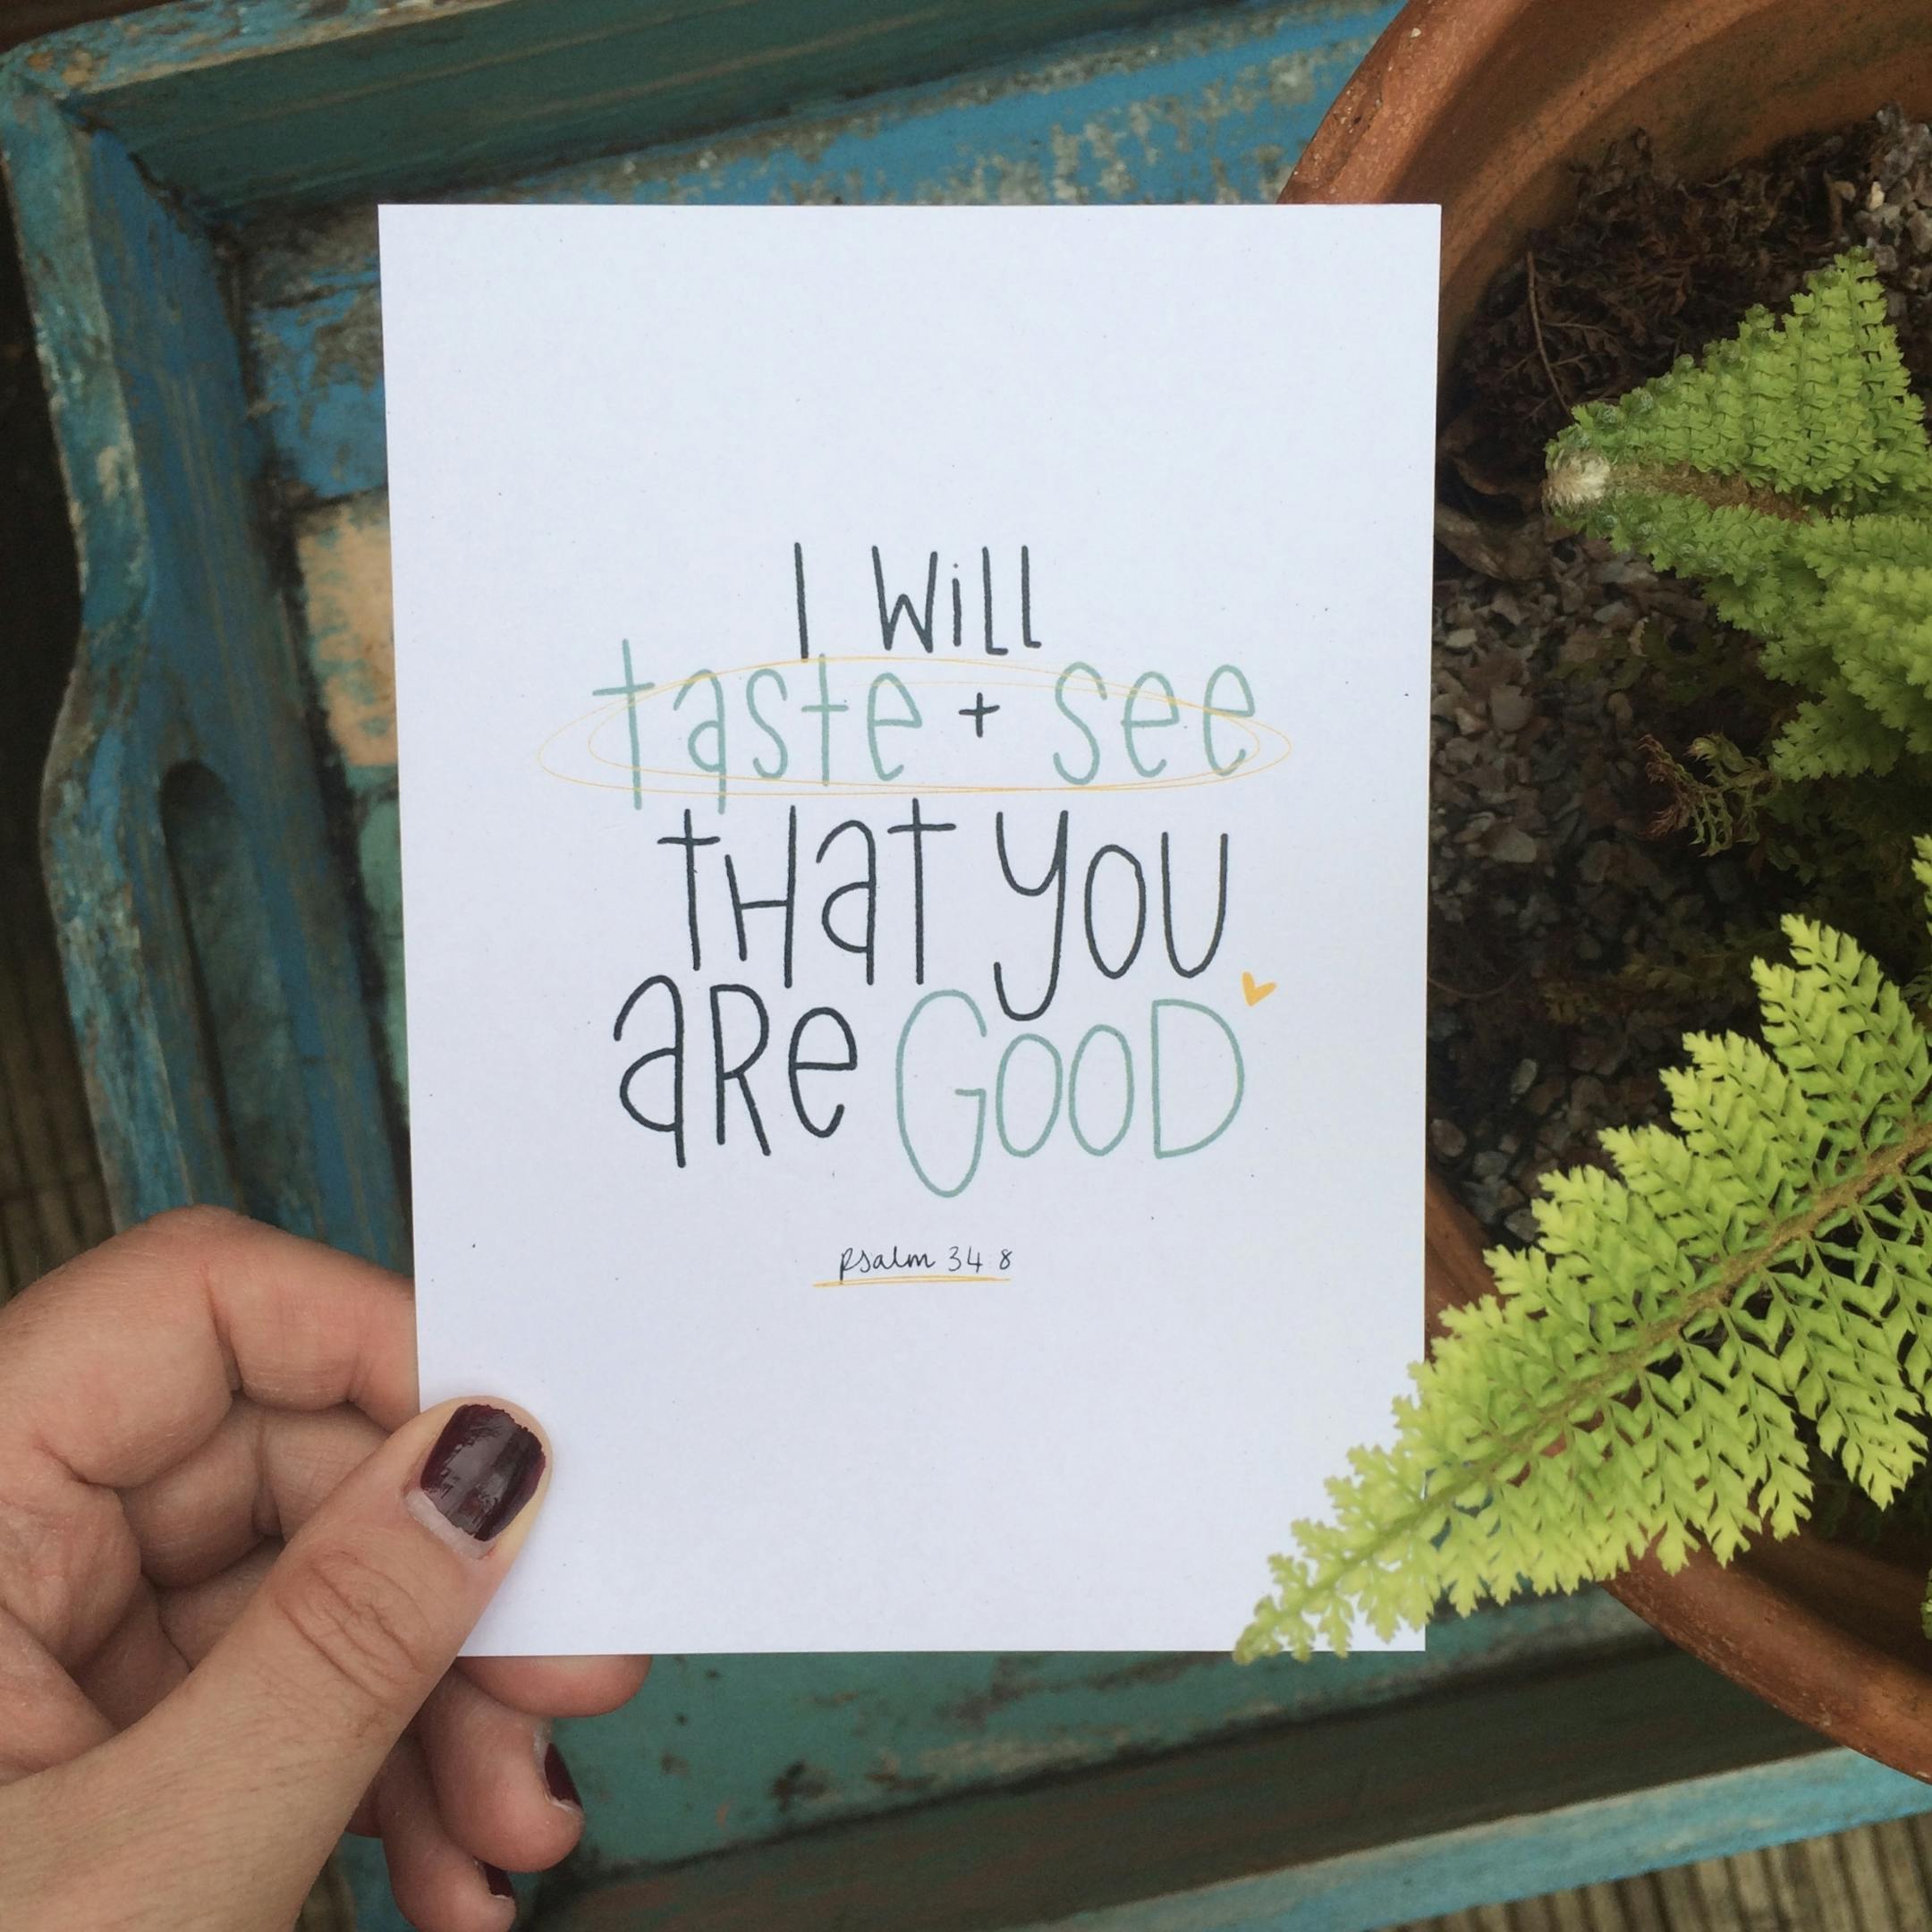 I WiLL
taste + see
tHat you
aRe GOOD
psalm 34:8